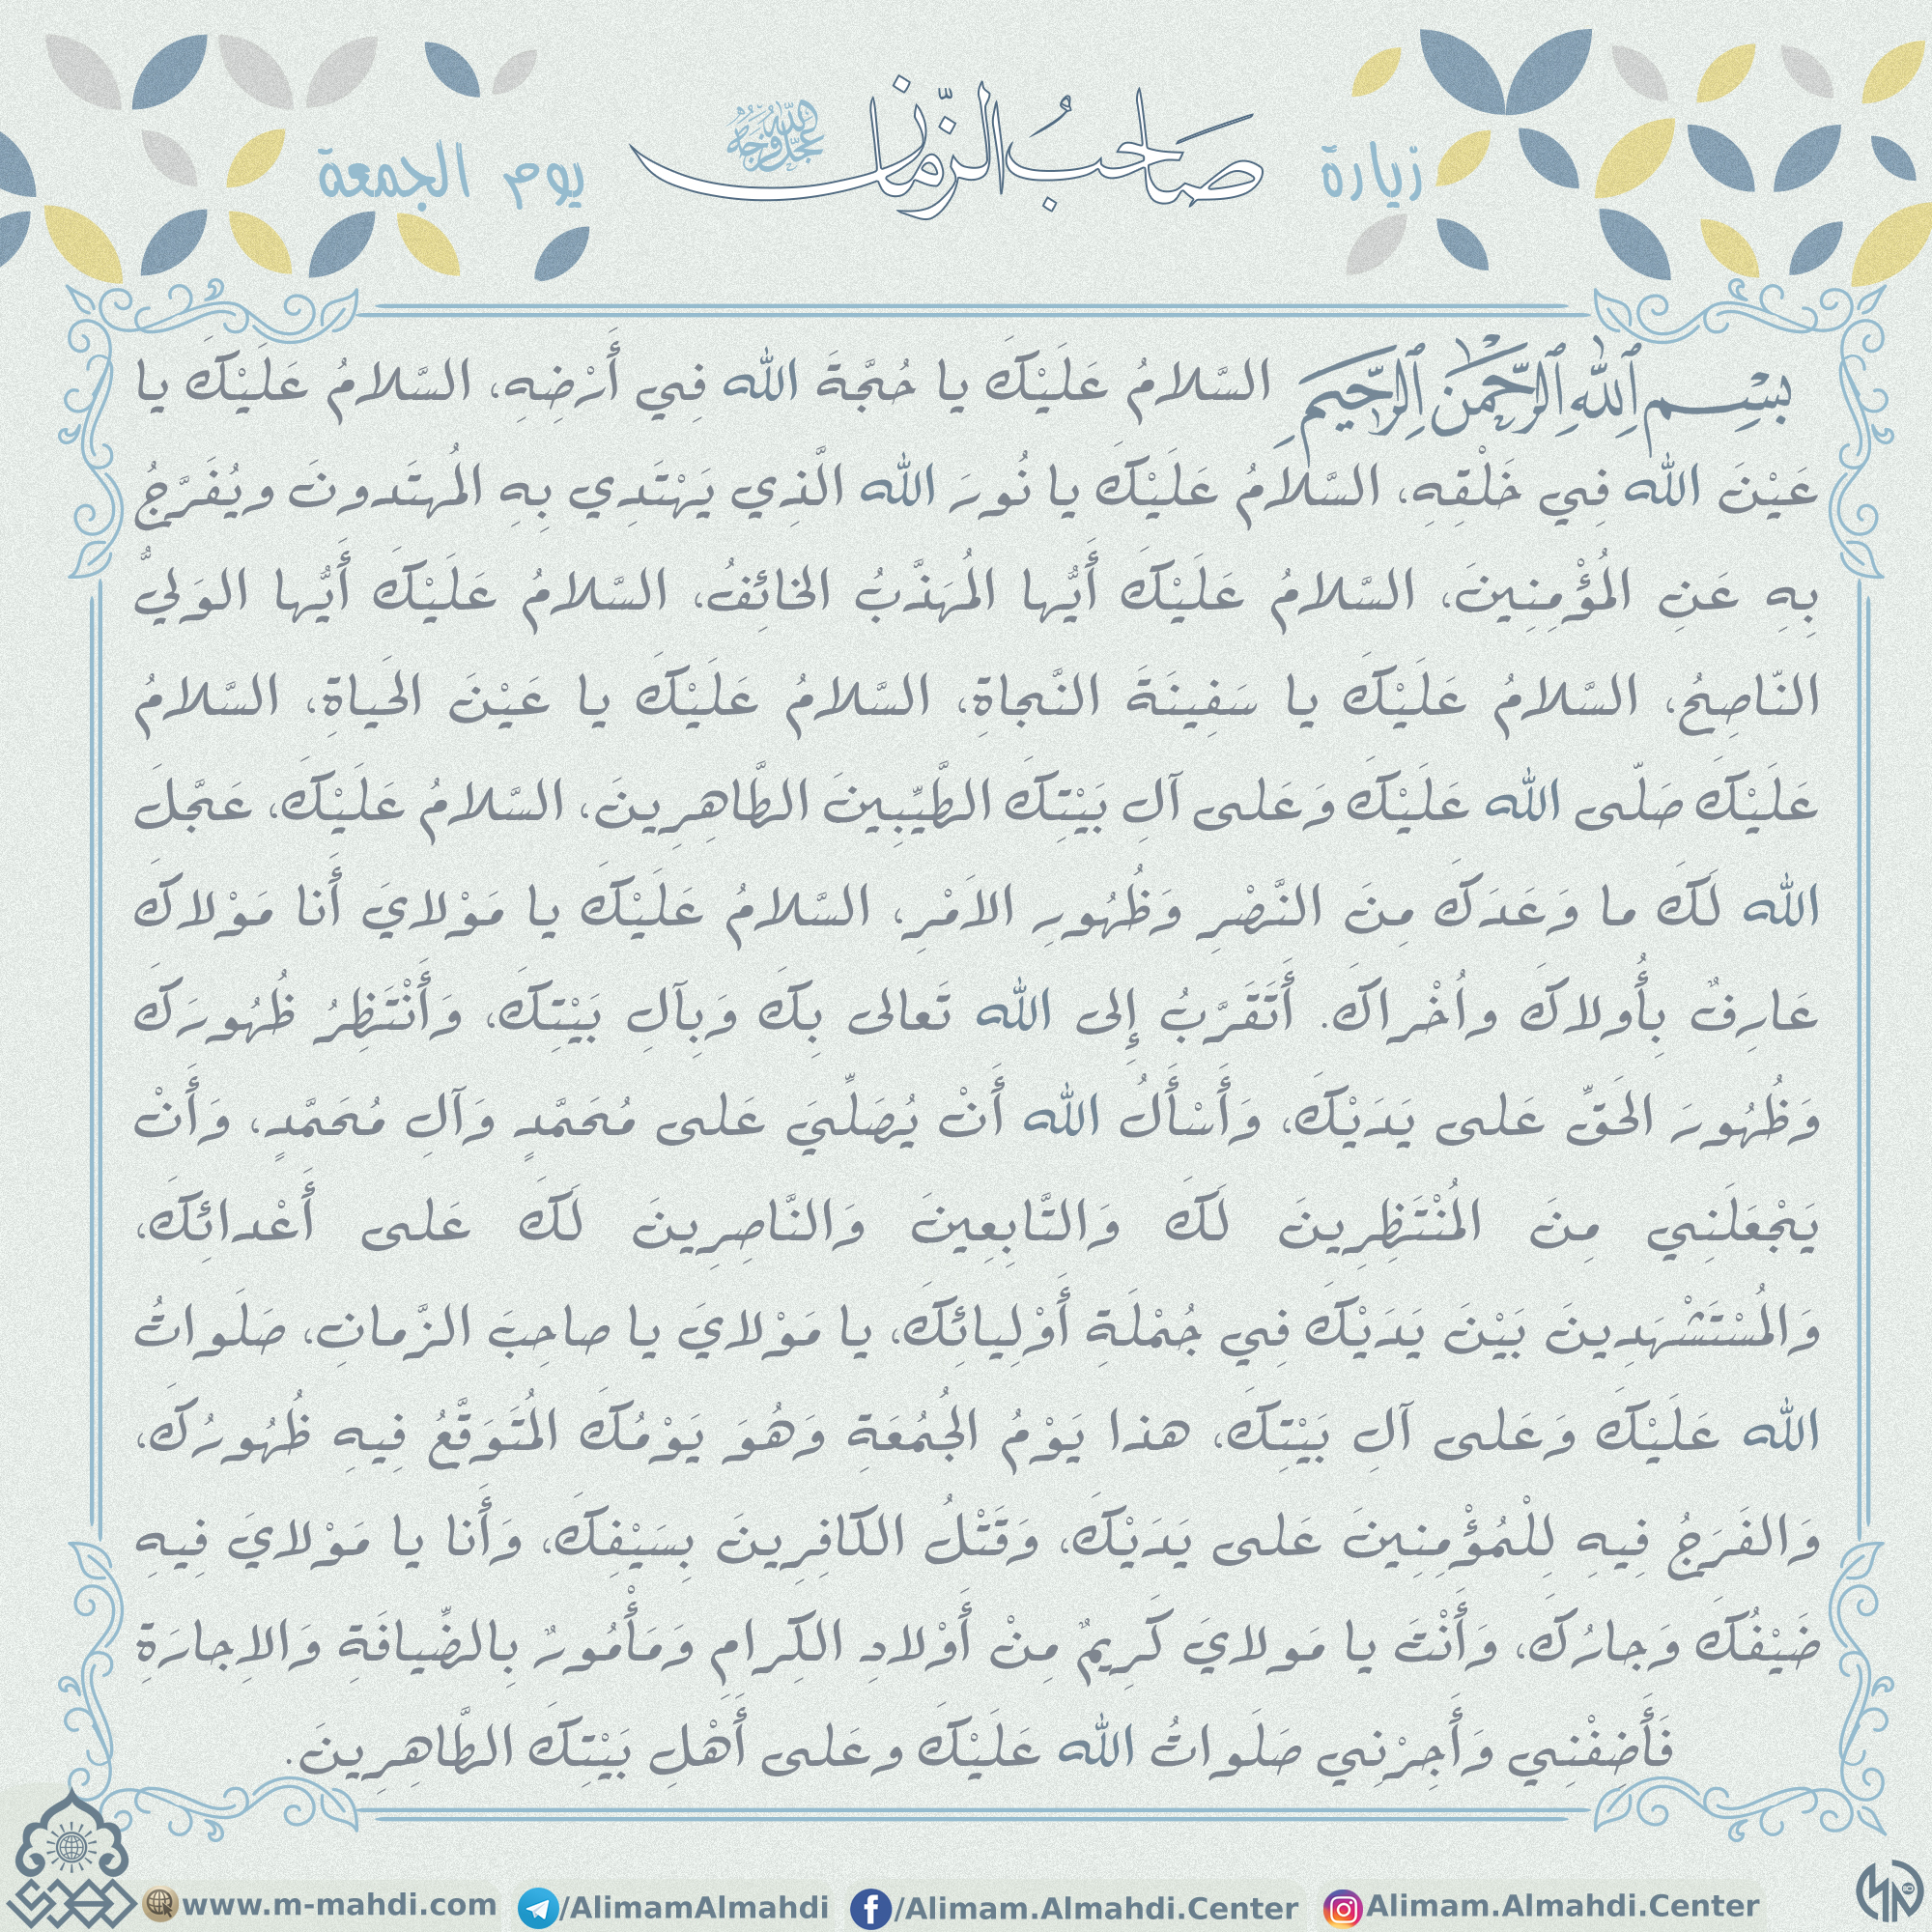 زيارة صاحبُ الزّمان عجّل الله فرجه يوم الجمعة
بِسْمِ ٱللهِ ٱلرَّحْمٰنِ ٱلرَّحِيمِ السَّلامُ عَلَيْكَ يا حُجَّةَ الله فِي أَرْضِهِ، السَّلامُ عَلَيْكَ يا
عَيْنَ الله فِي خَلْقِهِ، السَّلامُ عَلَيْكَ يا نُورَ الله الَّذِي يَهْتَدِي بِهِ المُهتَدونَ ويُفَرَّجُ
بِهِ عَنِ المُؤْمِنِينَ، السَّلامُ عَلَيْكَ أَيُّها المُهَذَّبُ الخائِفُ، السَّلامُ عَلَيْكَ أَيُّها الوَلِيُّ
النّاصِحُ، السَّلامُ عَلَيْكَ يا سَفِينَةَ النَّجاةِ، السَّلامُ عَلَيْكَ يا عَيْنَ الحَياةِ، السَّلامُ
عَلَيْكَ صَلّى الله عَلَيْكَ وَعَلى آلِ بَيْتِكَ الطَّيِّبِينَ الطَّاهِرِينَ، السَّلامُ عَلَيْكَ، عَجَّلَ
الله لَكَ ما وَعَدَكَ مِنَ النَّصْرِ وَظُهُورِ الاَمْرِ، السَّلامُ عَلَيْكَ يا مَوْلايَ أَنا مَوْلاكَ
عَارِفٌ بِأُولاكَ واُخْراكَ. أَتَقَرَّبُ إِلى الله تَعالى بِكَ وَبِآلِ بَيْتِكَ، وَأَنْتَظِرُ ظُهُورَكَ
وَظُهُورَ الحَقِّ عَلى يَدَيْكَ، وَأَسْأَلُ الله أَنْ يُصَلِّيَ عَلى مُحَمَّدٍ وَآلِ مُحَمَّدٍ، وَأَنْ
يَجْعَلَنِي مِنَ المُنْتَظِرِينَ لَكَ وَالتَّابِعِينَ وَالنَّاصِرِينَ لَكَ عَلى أَعْدائِكَ،
وَالمُسْتَشْهَدِينَ بَيْنَ يَدَيْكَ فِي جُمْلَةِ أَوْلِيائِكَ، يا مَوْلايَ يا صاحِبَ الزَّمانِ، صَلَواتُ
الله عَلَيْكَ وَعَلى آلِ بَيْتِكَ، هذا يَوْمُ الجُمُعَةِ وَهُوَ يَوْمُكَ المُتَوَقَّعُ فِيهِ ظُهُورُكَ،
وَالفَرَجُ فِيهِ لِلْمُؤْمِنِينَ عَلى يَدَيْكَ، وَقَتْلُ الكافِرِينَ بِسَيْفِكَ، وَأَنا يا مَوْلايَ فِيهِ
ضَيْفُكَ وَجارُكَ، وَأَنْتَ يا مَولايَ كَرِيمٌ مِنْ أَوْلادِ الكِرام وَمَأْمُورٌ بِالضِّيافَةِ وَالاِجارَةِ
فَأَضِفْنِي وَأَجِرْنِي صَلَواتُ الله عَلَيْكَ وعَلى أَهْلِ بَيْتِكَ الطَّاهِرِينَ.
www.m-mahdi.com /AlimamAlmahdi /Alimam.Almahdi.Center Alimam.Almahdi.Center